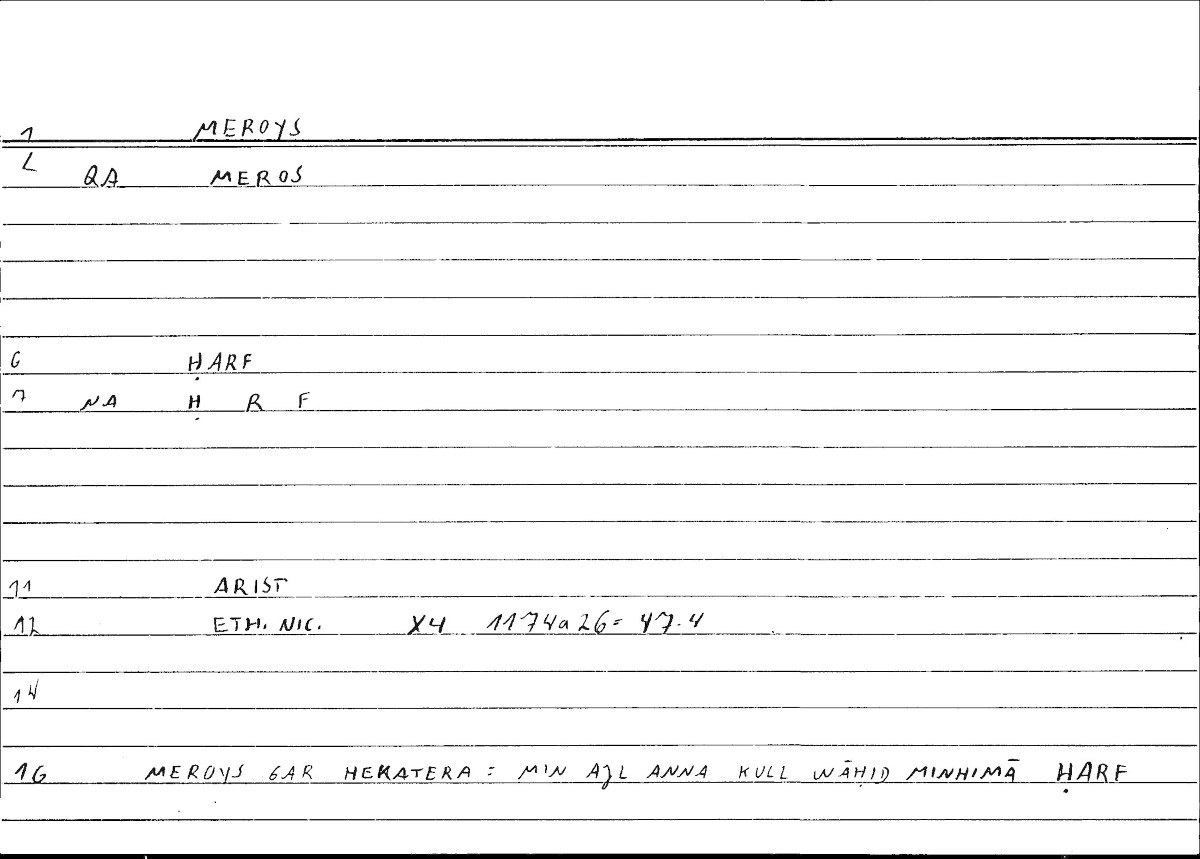 1 MEROYS
2 QA MEROS
6 ḤARF
7 NA Ḥ R F
11 ARIST
12 ETH. NIC. X4 1174a26= 47.4
14
16 MEROYS GAR HEKATERA : MIN AJL ANNA KULL WĀḤID MINHIMĀ ḤARF